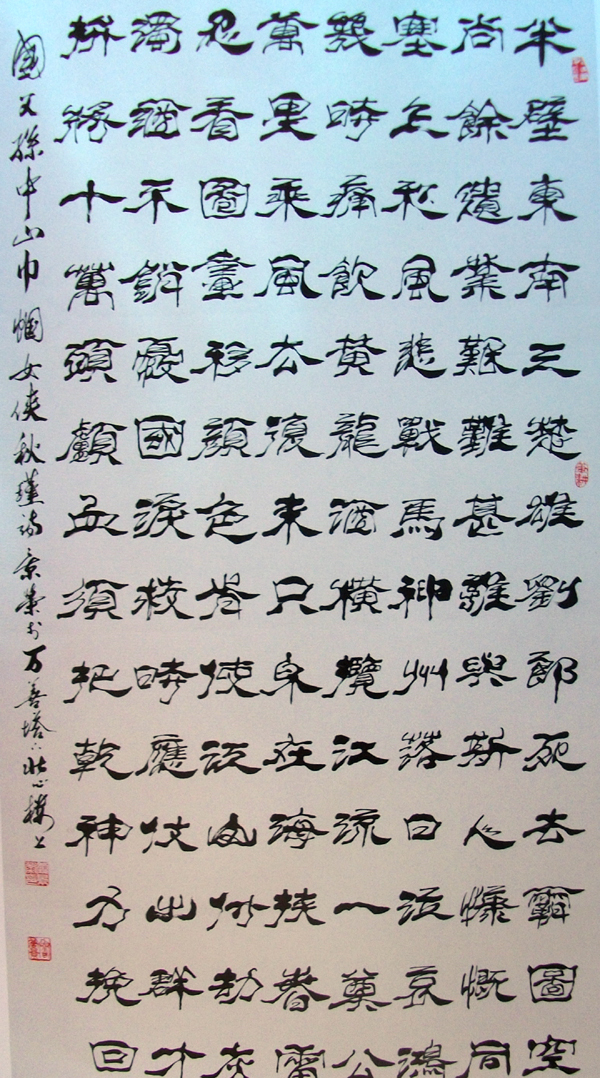 半壁東南三楚雄劉郎死去霸圖空
尚餘遺業艱難甚誰與斯人慷慨同
塞秋風悲戰馬神州落日泣哀鴻
幾時痛飲黃龍酒橫攬江流一奠公
萬里乘風去復來只身在海挾春雷
忍看圖畫移顏色肯使江山付劫灰
濁酒不銷憂國淚救時應仗出群才
拚將十萬頭顱血須把乾坤力挽回
國父孫中山巾幗女俠秋瑾詩万善塔下心樓上